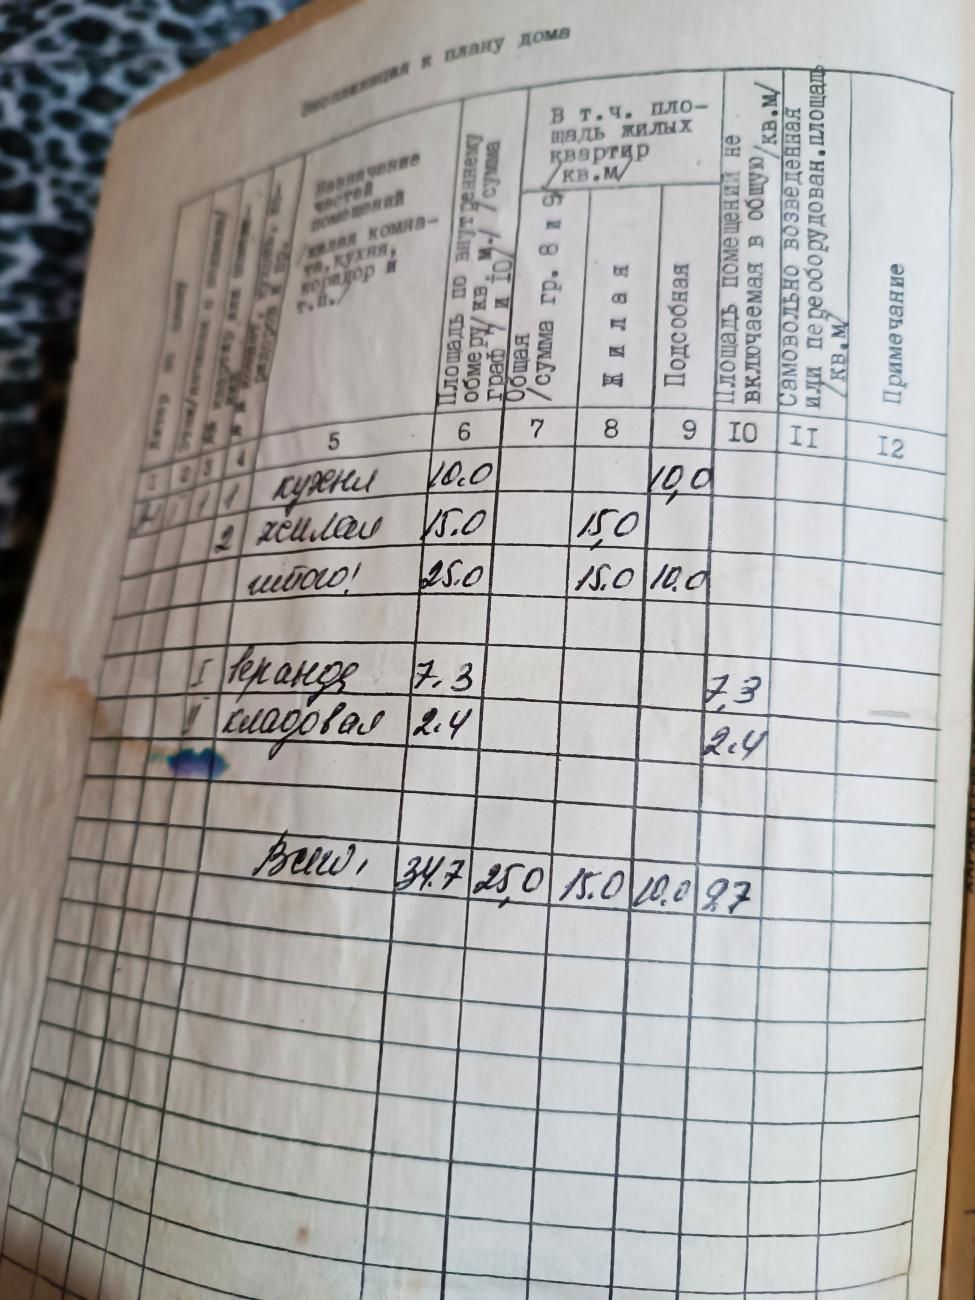 Экспликация к плану дома
Литер по плану
Этаж/начиная с подвала/
Назначение
частей
помещений
/жилая комна-
та, кухня,
коридор и
т.п./
Площадь по внутреннему
обмеру/кв. м./ /сумма
граф 7 и 10/
В т.ч. пло-
щадь жилых
квартир
/кв.м/
Общая
/сумма гр. 8 и 9/
Жилая
Подсобная
Площадь помещений не
включаемая в общую/кв.м/
Самовольно возведенная
или переоборудован.площадь
/кв.м/
Примечание
1 2 3 4 5 6 7 8 9 10 11 12
1 1 кухня 10.0 10,0
2 жилая 15.0 15,0
итого: 25.0 15.0 10.0
I веранда 7.3 7,3
II кладовая 2.4 2.4
Всего: 34.7 25,0 15.0 10.0 9.7